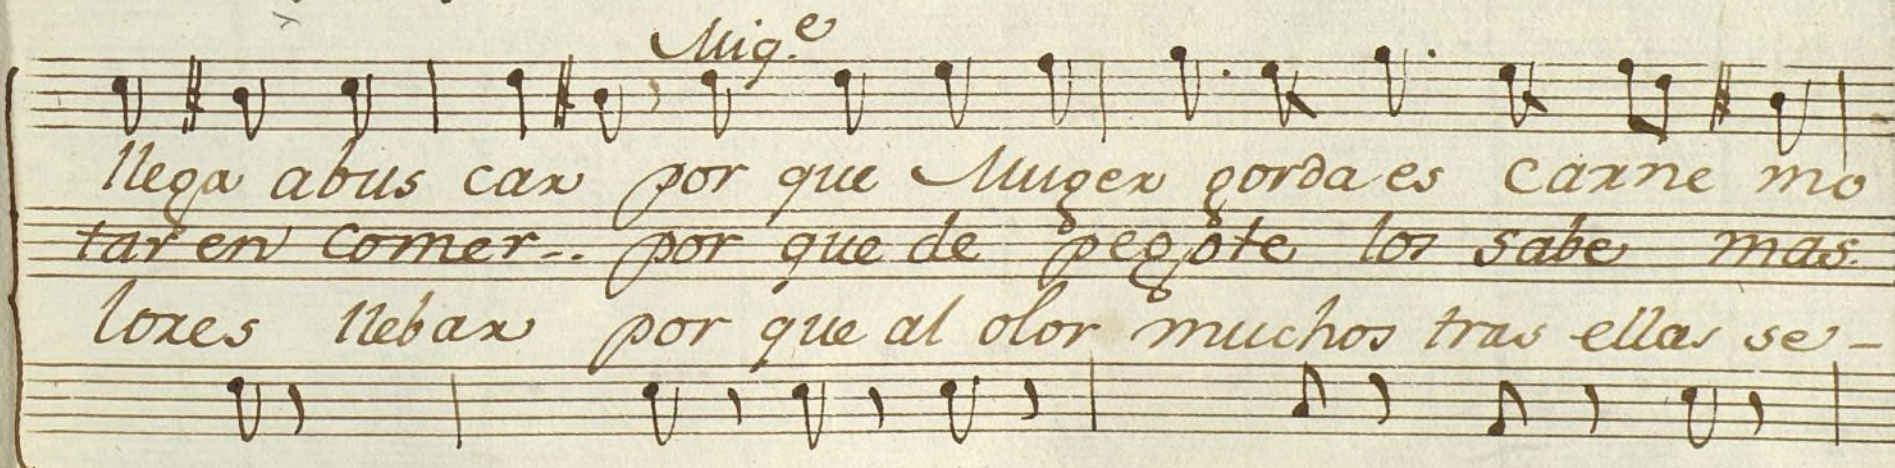 Mig.e
llega abus car por que Muger gorda es carne mo
tar en comer-.. por que de pegote los sabe mas.
lores llebar por que al olor muchos tras ellas se-